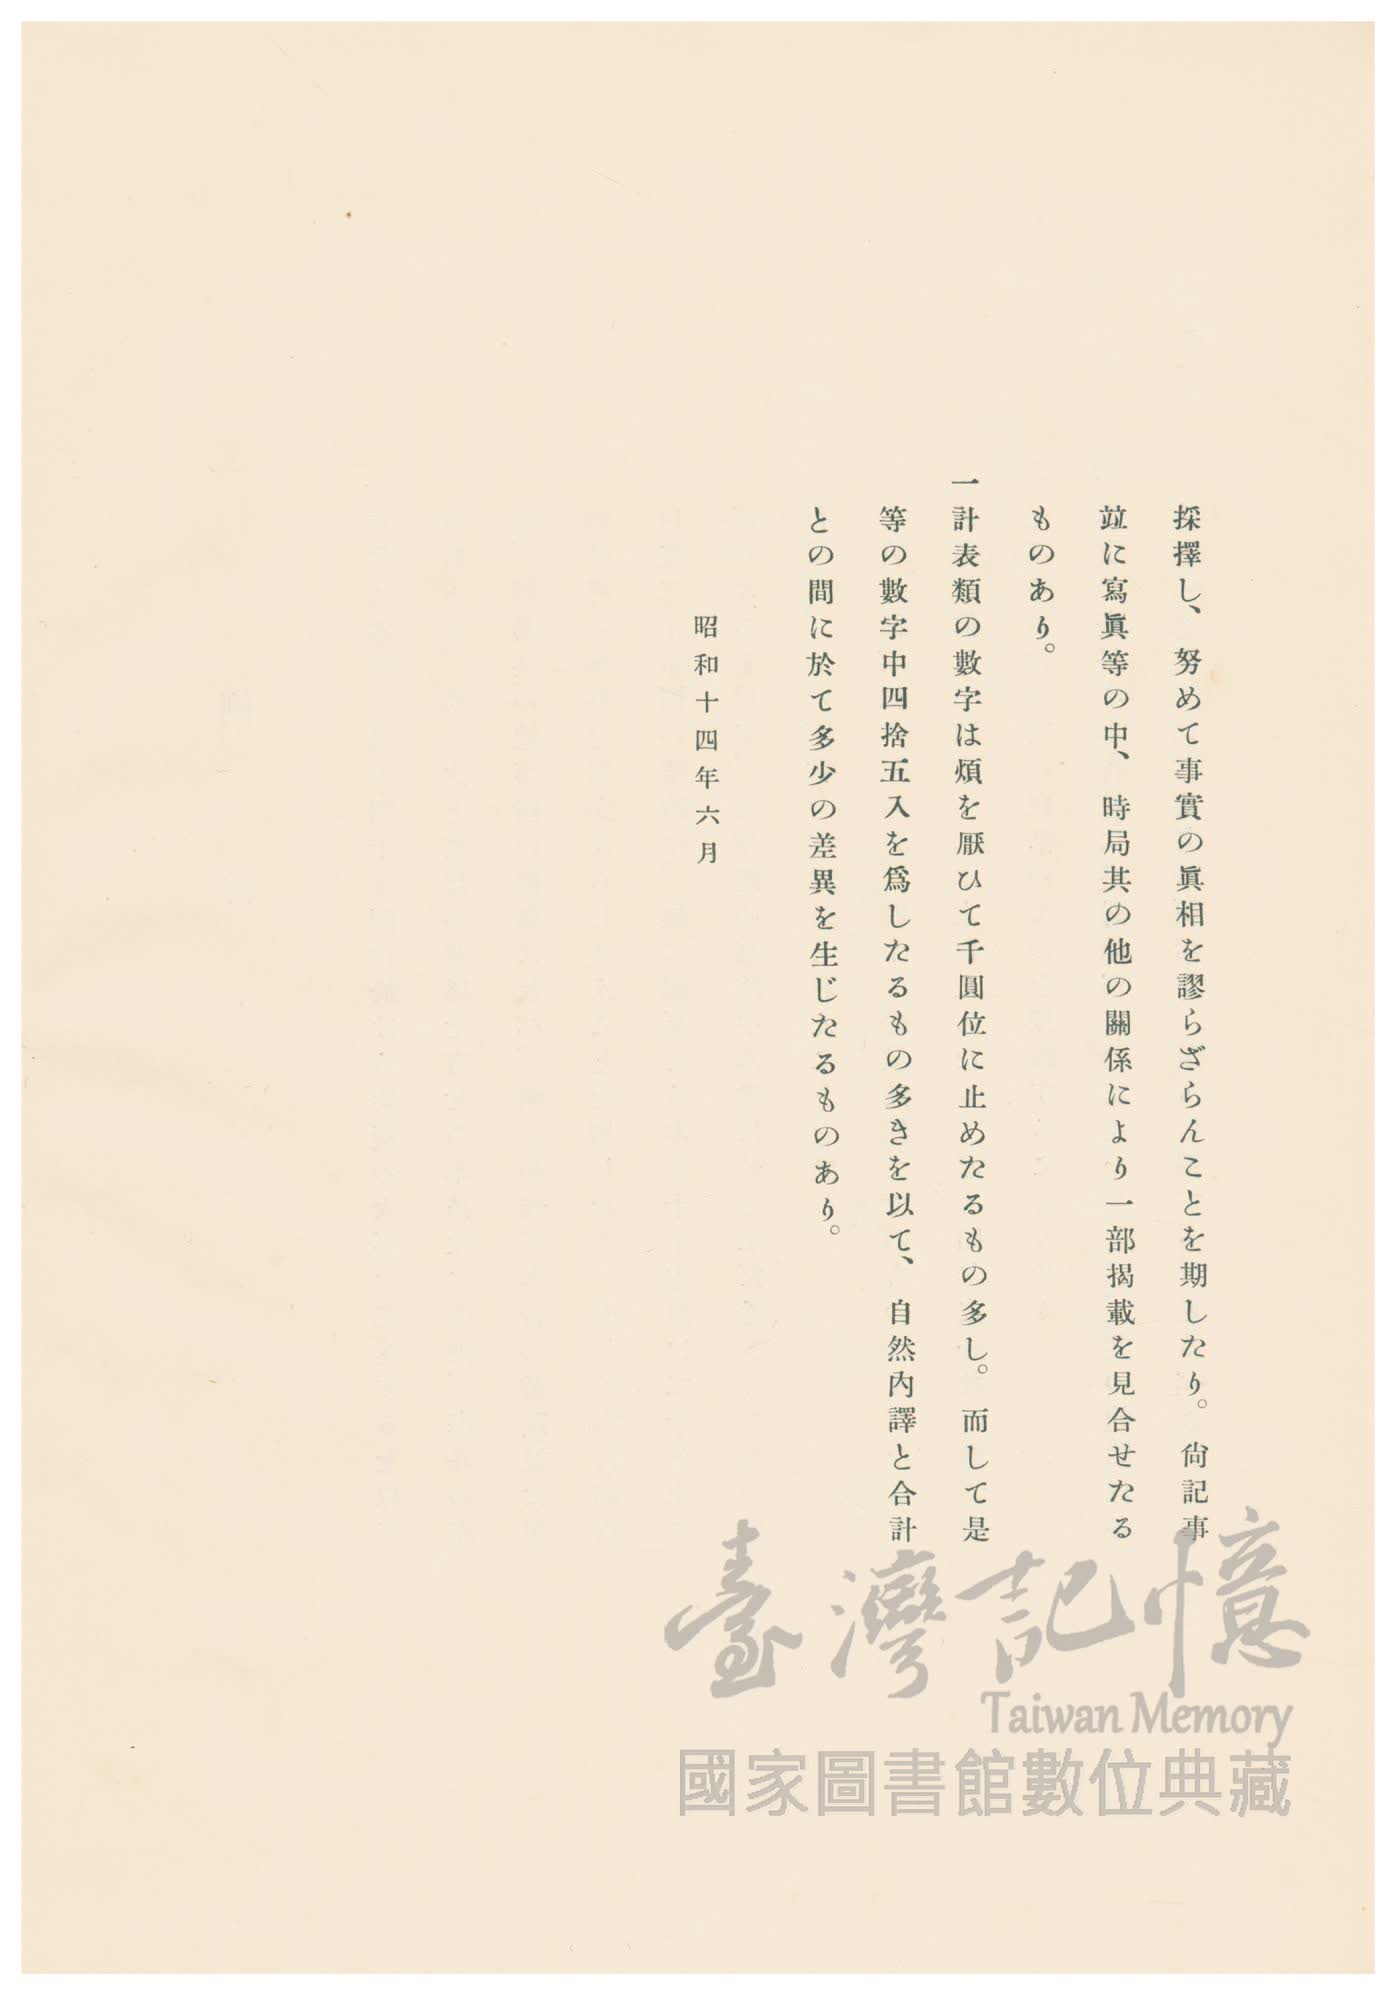 採擇し、努めて事實の眞相を謬らざらんことを期したり。尙記事
竝に寫眞等の中、時局其の他の關係により一部揭載を見合せたる
ものあり。
一計表類の數字は煩を厭ひて千圓位に止めたるもの多し。而して是
等の數字中四捨五入を爲したるもの多きを以て、自然內譯と合計
との間に於て多少の差異を生じたるものあり。
昭和十四年六月
臺灣記憶
Taiwan Memory
國家圖書館數位典藏